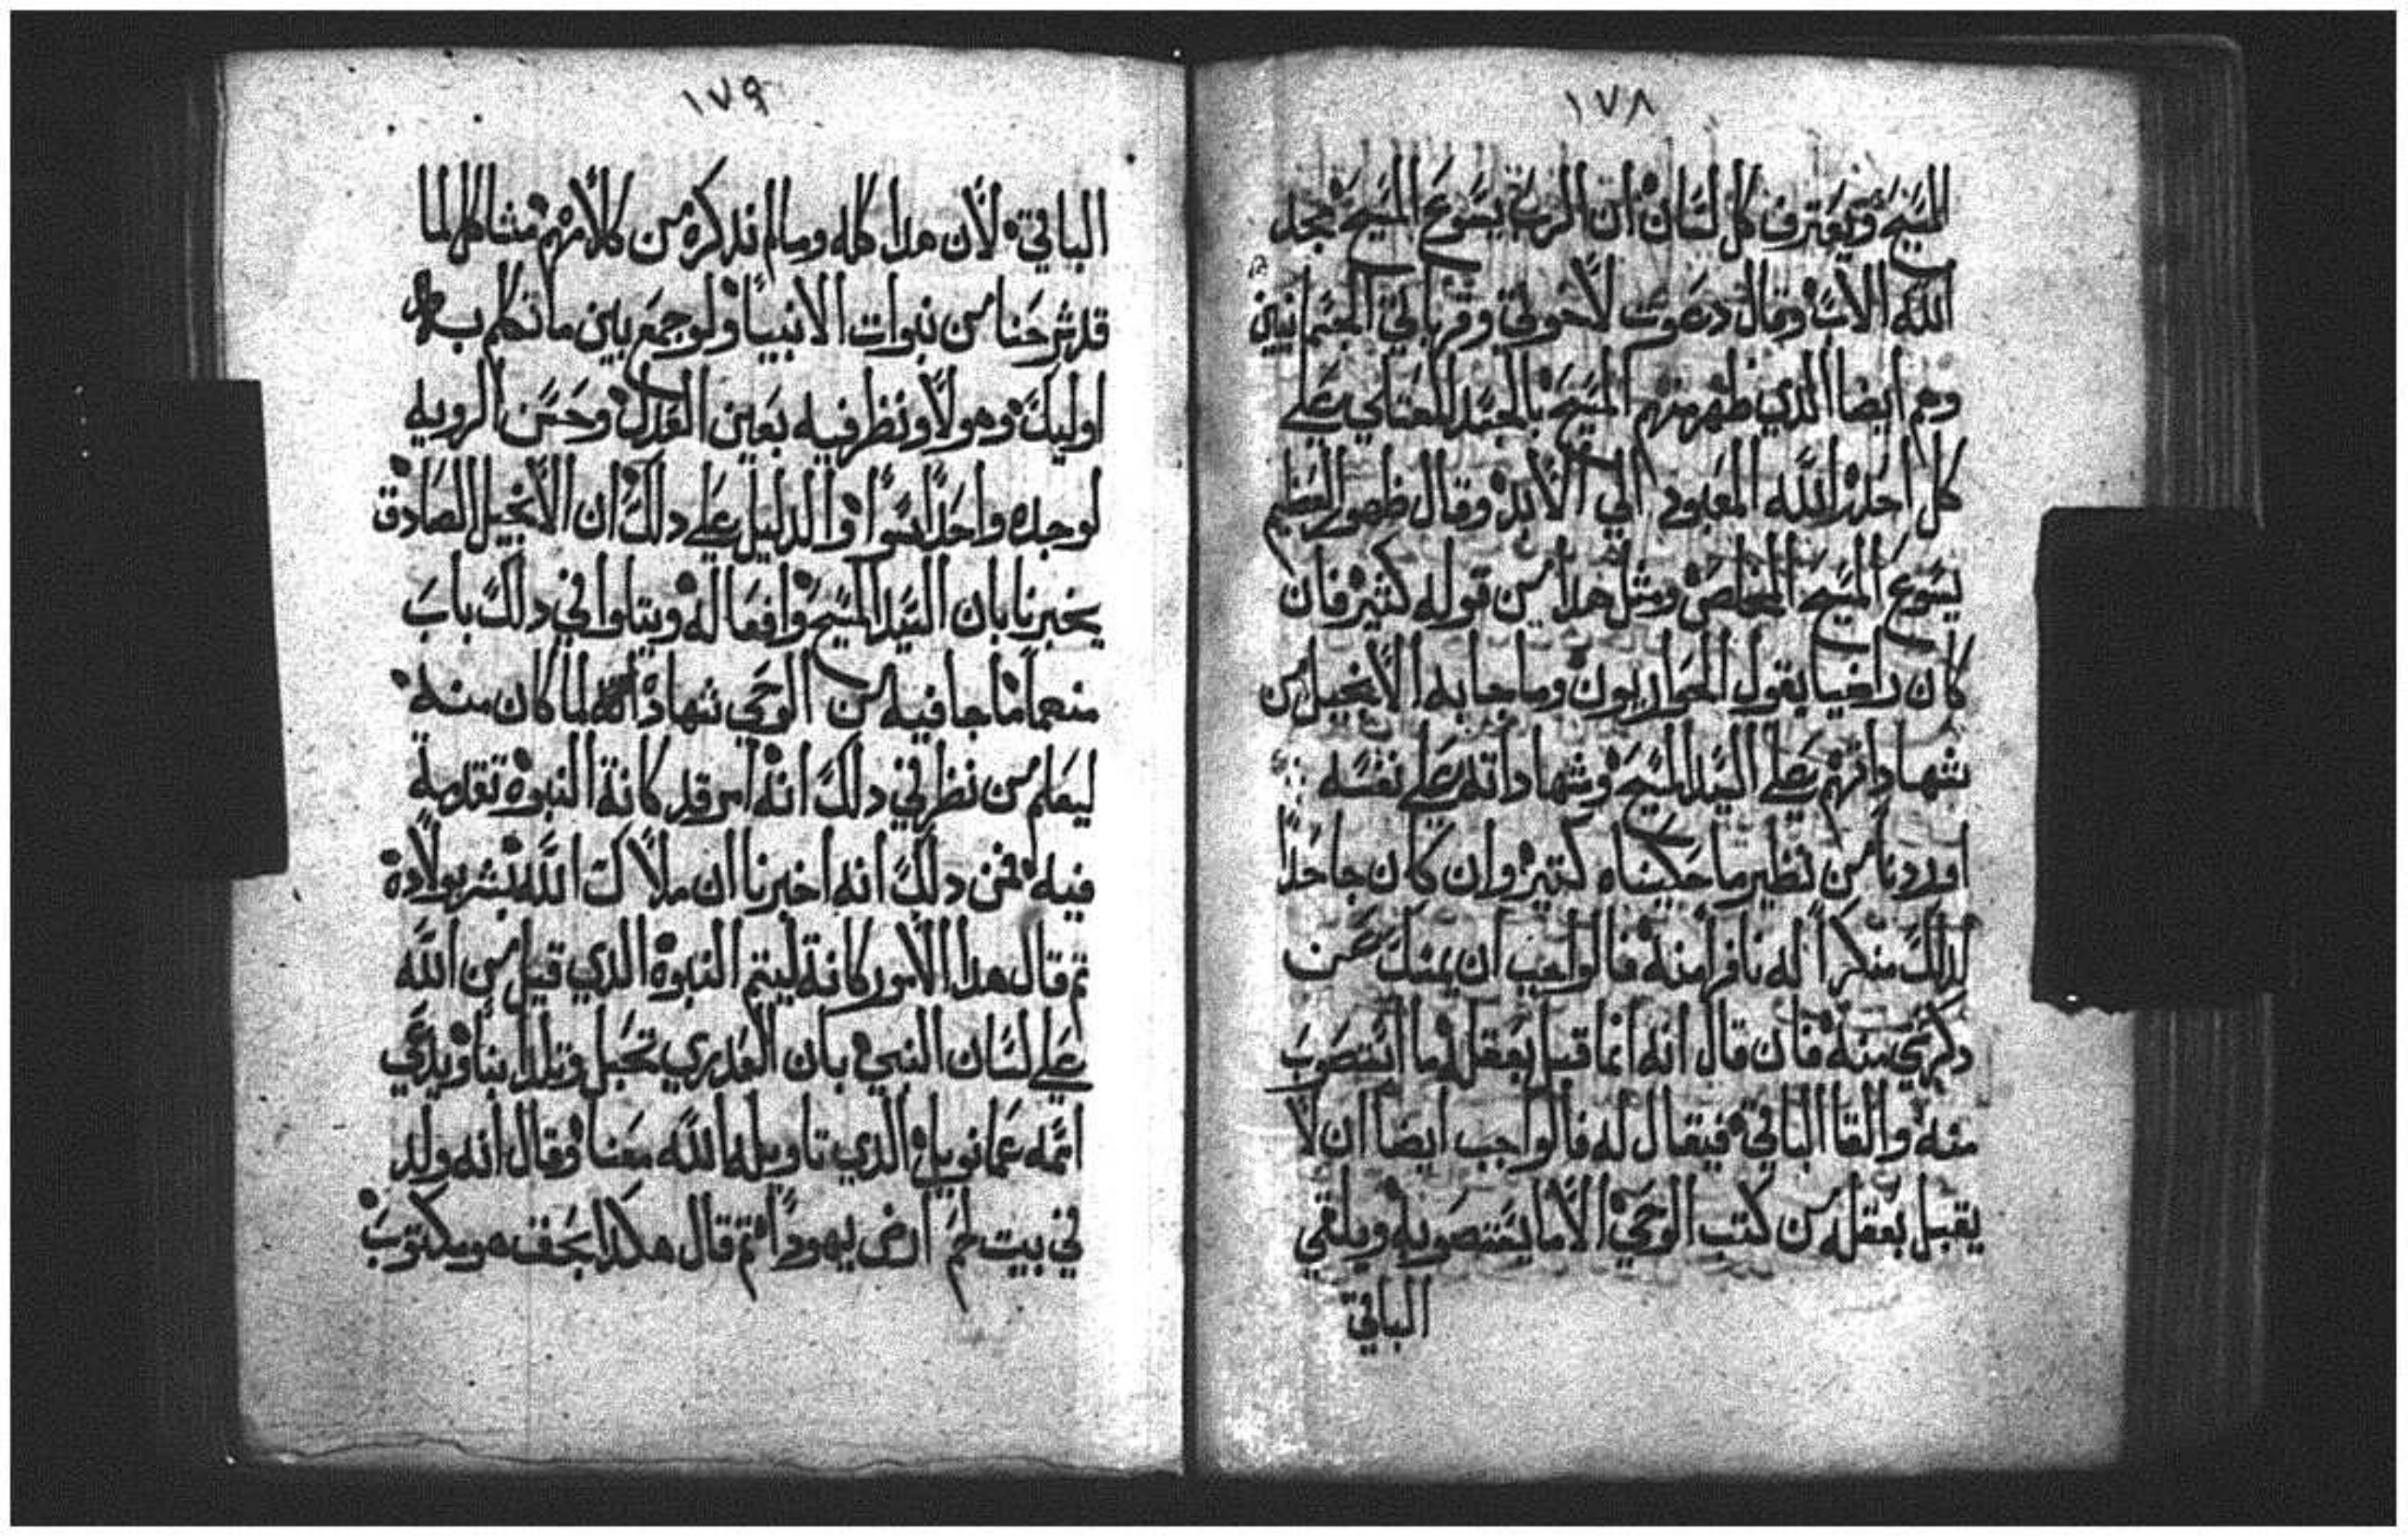 ١٧٨
المسيح ويعترف كل لسان ان الرب يسوع المسيح بمجد
الله الاب وقال دعوت لاخوتي وقرباتي الجسمانيين
وهم ايضا الذي ظهر منهم المسيح بالجسد المتعالي على
كل احد الله المعبود الي الابد وقال ظهور العظيم
يسوع المسيح المخلص ومثل هدا من قوله كثير فان
كان راضيا بقول الحواريون وما جا به الانجيل من
شهاداتهم على السيد المسيح وشهاداته على نفسه
اوردنا من نظير ما حكيناه كتير وان كان جاحدا
لدلك منكرا له نافرا منه فالواجب ان يمسك عن
دكر شي منه فان قال انه انما قبل بعقله ما استصوب
منه والقا الباقي فيقال له فالواجب ايضا ان لا
يقبل بعقله من كتب الوحي الا ما يستصوبه ويلقي
الباقي
١٧٩
الباقي لان هدا كله وما لم ندكره من كلامهم مشاكل لما
قد شرحنا من نبوات الانبيا ولو جمع بين ما تكلم به
اوليك وهولا ونظر فيه بعين العدل وحسن الرويه
لوجده واحدا سوا والدليل على دلك ان الانجيل الصادق
يخبرنا بان السيد المسيح وافعاله ويتلوا في دلك باب
منعما ما جا فيه من الوحي شهادة لما كان منه
ليعلم من نظر في دلك انه امر قد كانة النبوة تقدمة
فيه فمن دلك انه اخبرنا ان ملاك الله بشر بولادة
تم قال هدا الامور كانة ليتم النبوة الدي قيل من الله
على لسان النبي بان العدري تحبل وتلد ابنا ويدعي
اسمه عمانويل الدي تاويله الله معنا وقال انه ولد
في بيت لحم ارض يهودا تم قال هكدا ومكتوب